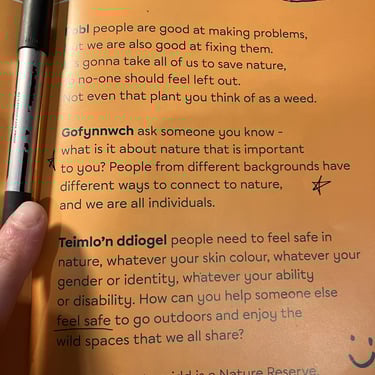 people are good at making problems,
we are also good at fixing them.
gonna take all of us to save nature,
no-one should feel left out.
Not even that plant you think of as a weed.
Gofynnwch ask someone you know -
what is it about nature that is important
to you? People from different backgrounds have
different ways to connect to nature,
and we are all individuals.
Teimlo'n ddiogel people need to feel safe in
nature, whatever your skin colour, whatever your
gender or identity, whatever your ability
or disability. How can you help someone else
feel safe to go outdoors and enjoy the
wild spaces that we all share?
is a Nature Reserve.